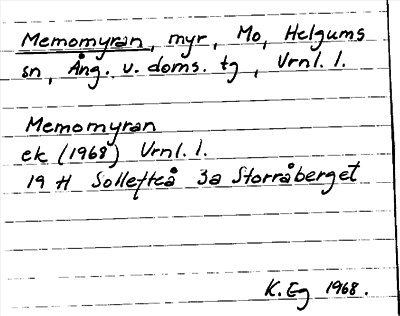 Memomyran, myr, Mo, Helgums
sn, Ång. v. doms. tg, Vrnl. l.
Memomyran
ek (1968) Vrnl. l.
19 H Sollefteå 3a Storråberget
K. Eg 1968.